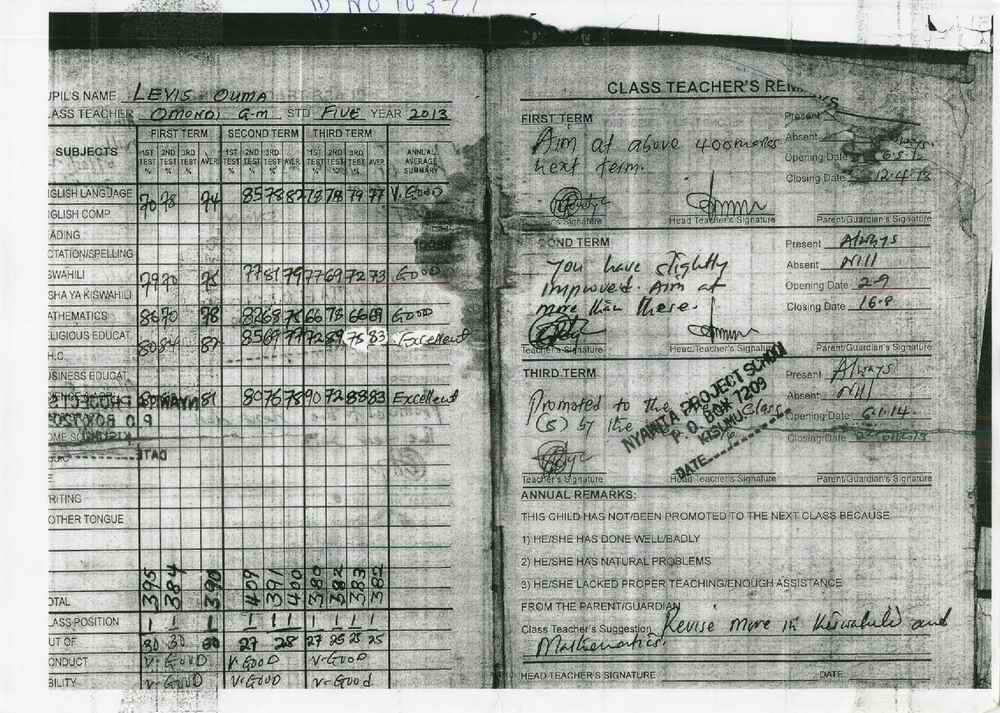 ID NO 10377
UPIL'S NAME LEVIS OUMA
ASS TEACHER OMONDI G.M STD FIVE YEAR 2013
SUBJECTS
FIRST TERM SECOND TERM THIRD TERM
1ST TEST % 2ND TEST % 3RD TEST % AVER. 1ST TEST % 2ND TEST % 3RD TEST % AVER. 1ST TEST % 2ND TEST % 3RD TEST % AVER. ANNUAL AVERAGE SUMMARY
GLISH LANGUAGE 70 78 74 85 78 82 72 78 79 77 V. GOOD
GLISH COMP.
ADING
CTATION/SPELLING
SWAHILI 79 70 75 77 81 79 77 69 72 73 GOOD
SHA YA KISWAHILI
ATHEMATICS 86 70 78 82 68 75 66 73 66 69 GOOD
ELIGIOUS EDUCAT. 80 84 82 85 69 77 72 89 75 83 Excellent
H.C.
USINESS EDUCAT
81 80 76 78 90 72 88 83 Excellent
OME SC
RITING
OTHER TONGUE
OTAL 395 384 390 409 391 400 380 382 383 382
ASS POSITION 1 1 1 1 1 1 1 1 1 1
UT OF 30 30 30 27 28 27 25 25 25
ONDUCT V. GOOD V. GOOD V. GOOD
BILITY V. GOOD V. GOOD V. Good
CLASS TEACHER'S REMARKS
FIRST TERM
Aim at above 400 marks
next term.
Present
Absent
Opening Date 6-5-13
Closing Date 12-4-13
Signature Head Teacher's Signature Parent/Guardian's Signature
COND TERM
You have slightly
improved. Aim at
more than these.
Present Always
Absent Nill
Opening Date 2-9
Closing Date 16-8
Teacher's Signature Head Teacher's Signature Parent/Guardian's Signature
THIRD TERM
Promoted to the
(5) by the Class.
Present Always
Absent Nill
Opening Date 6-1-14
Closing Date
NYAWITA PROJECT SCHOOL
P. O. BOX 7209
KISUMU
DATE
Teacher's Signature Head Teacher's Signature Parent/Guardian's Signature
ANNUAL REMARKS:
THIS CHILD HAS NOT/BEEN PROMOTED TO THE NEXT CLASS BECAUSE
1) HE/SHE HAS DONE WELL/BADLY
2) HE/SHE HAS NATURAL PROBLEMS
3) HE/SHE LACKED PROPER TEACHING/ENOUGH ASSISTANCE
FROM THE PARENT/GUARDIAN
Class Teacher's Suggestion Revise more in Kiswahili and
Mathematics.
HEAD TEACHER'S SIGNATURE DATE